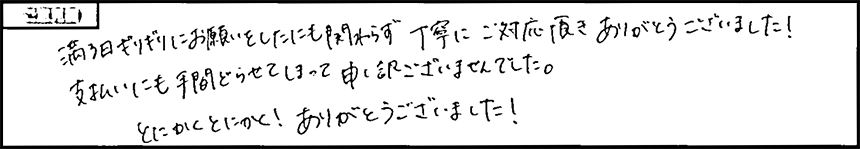 満3日ギリギリにお願いをしたにも関わらず 丁寧に ご対応頂き ありがとうございました!
支払いにも 手間どらせてしまって 申し訳ございませんでした。
とにかくとにかく! ありがとうございました!